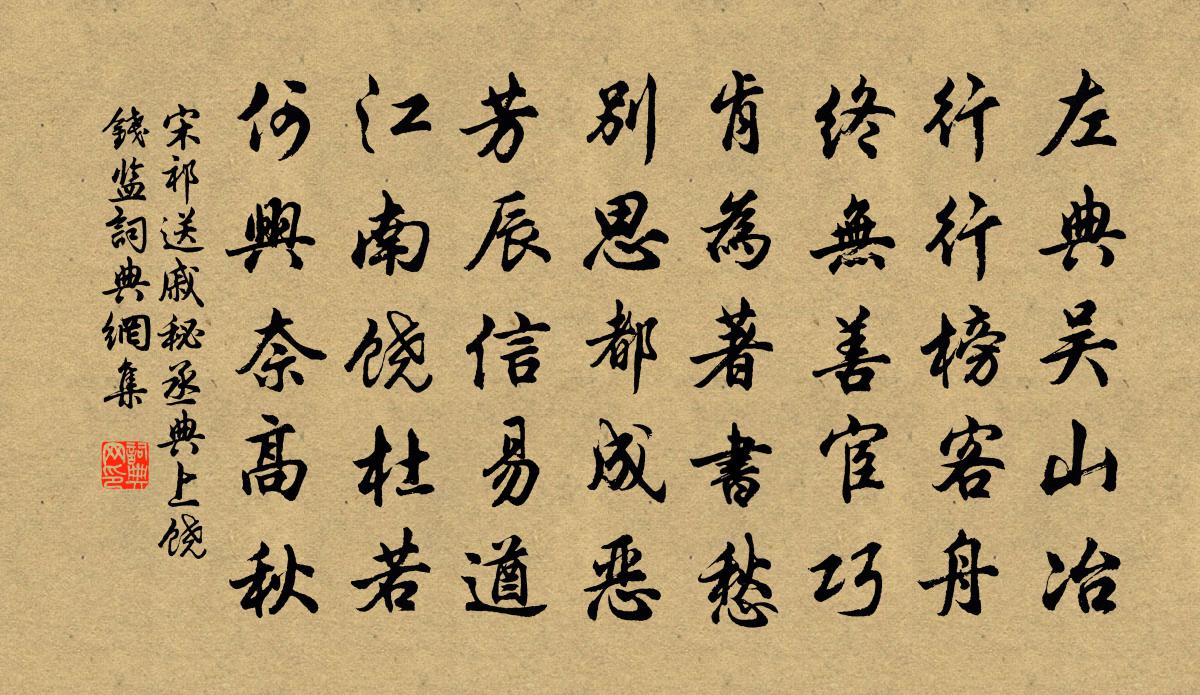 左典吴山冶
行行榜客舟
终無善宦巧
肯為著書愁
别思都成恶
芳辰信易遒
江南饶杜若
何興奈高秋
宋祁送戚秘丞典上饶
錢监詞典網集
詞典
网印